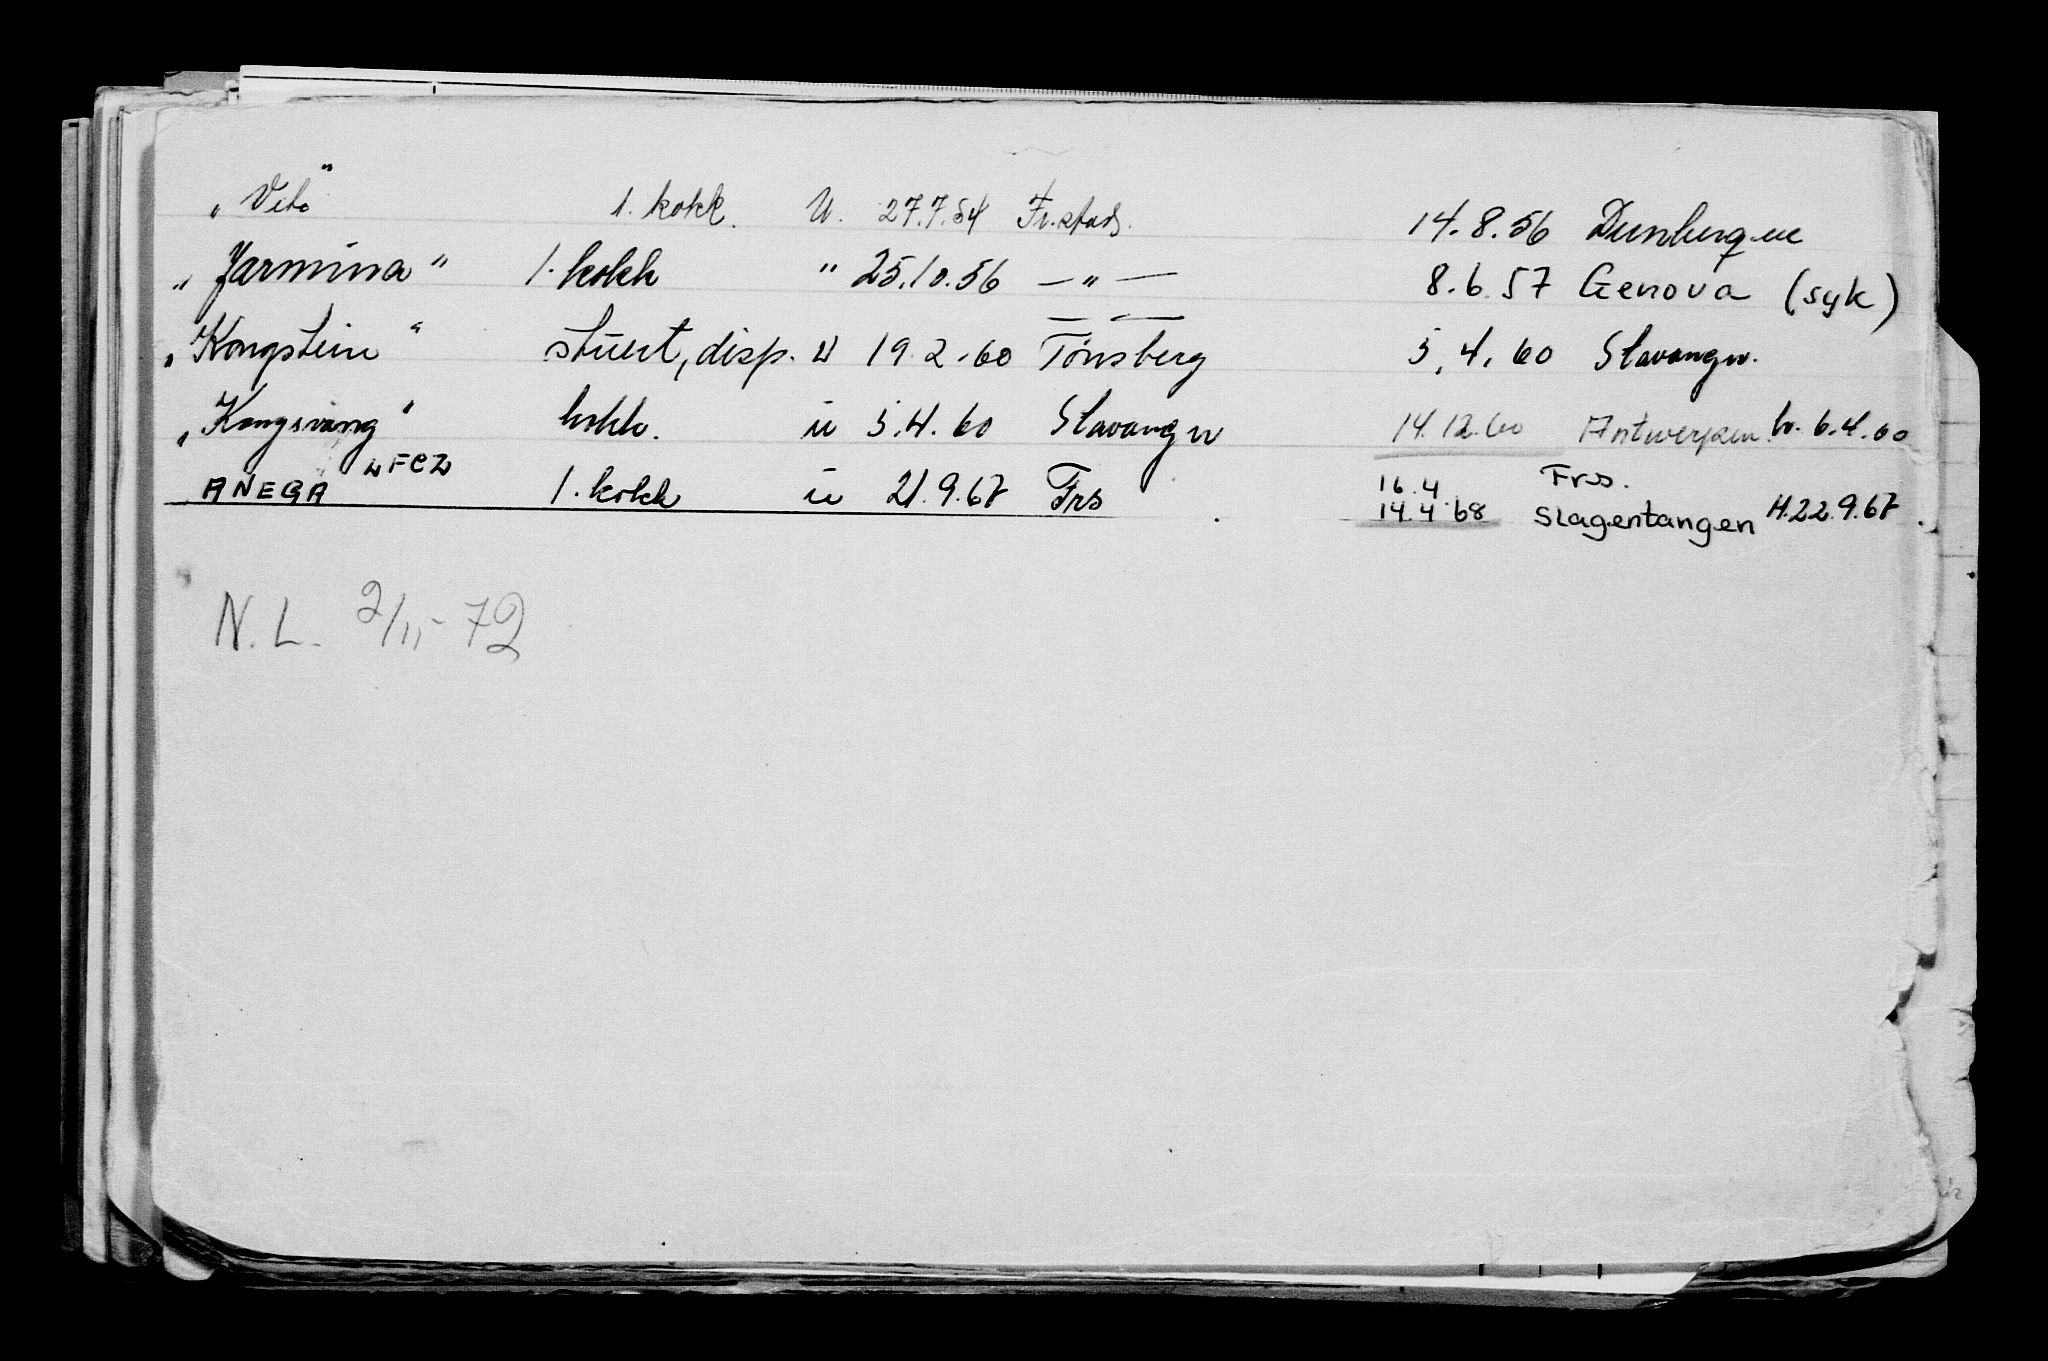 „Vito" 1. kokk. U. 27.7.54 Fr.stad. 14.8.56 Dunberque
„Jarmina" 1. kokk " 25.10.56 —"— 8.6.57 Genova (syk)
„Kongstein" stuert, disp. u 19.2.60 Tønsberg 5.4.60 Stavanger.
„Kongsvang" kokk. u 5.4.60 Stavanger 14.12.60 Antwerpen. h. 6.4.60
ANEGA LFCZ 1. kokk u 21.9.67 Frs 16.4 Frs.
14.4.68 Slagentangen H.22.9.67.
N.L. 2/11-72